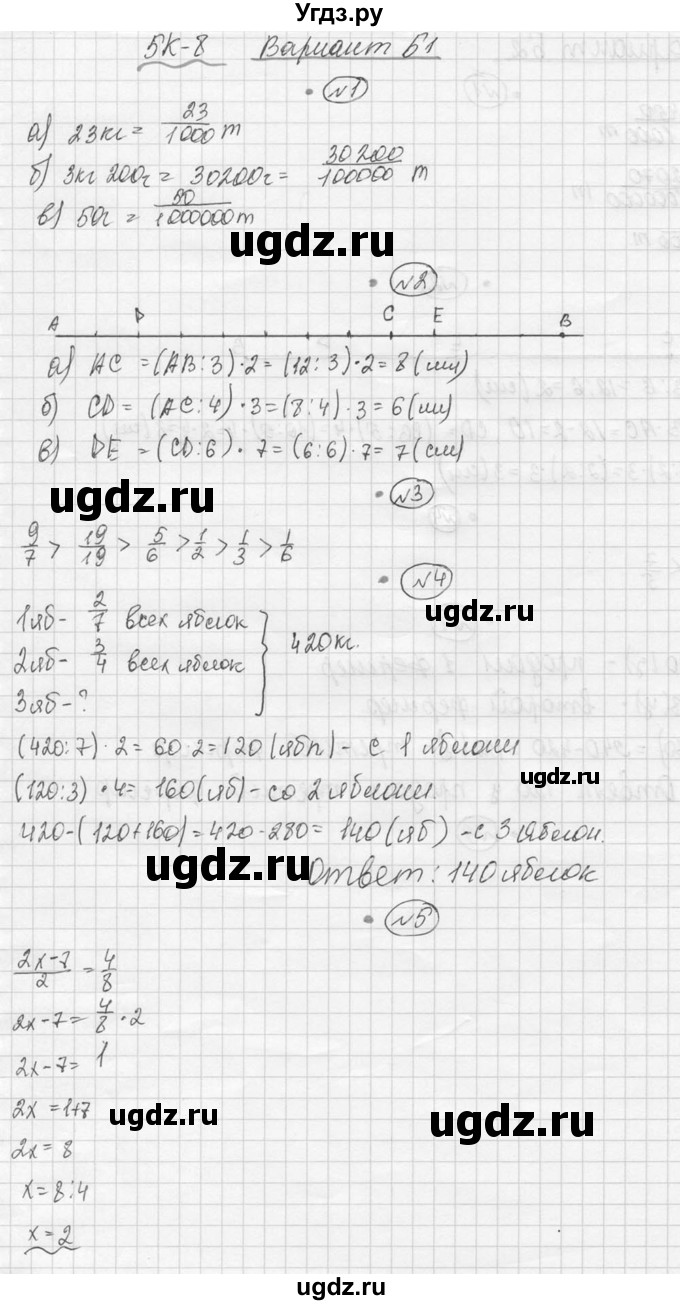 Угдз.ру
5К-8 Вариант Б1
№1
а) 23кг = 23/1000 т
б) 3кг 200г = 30200г = 30200/100000 т
в) 50г = 50/1000000 т
ugdz.ru
№2
A D C E B
а) AC = (AB:3)·2 = (12:3)·2 = 8 (см)
б) CD = (AC:4)·3 = (8:4)·3 = 6 (см)
в) DE = (CD:6)·7 = (6:6)·7 = 7 (см)
ugdz.ru
№3
9/7 > 19/19 > 5/6 > 1/2 > 1/3 > 1/6
№4
ugdz.ru
1яб - 2/7 всех яблок
2яб - 3/4 всех яблок
3яб - ?
420кг.
(420:7)·2 = 60·2 = 120 (ябл) - с 1 яблони
ugdz.ru
(120:3)·4 = 160 (яб) - со 2 яблони
420-(120+160) = 420-280 = 140 (яб) - с 3 яблон.
ugdz.ru
Ответ: 140 яблок
№5
(2x-7)/2 = 4/8
ugdz.ru
2x-7 = 4/8 · 2
2x-7 = 1
2x = 1+7
ugdz.ru
ugdz.ru
2x = 8
x = 8:4
x = 2
ugdz.ru